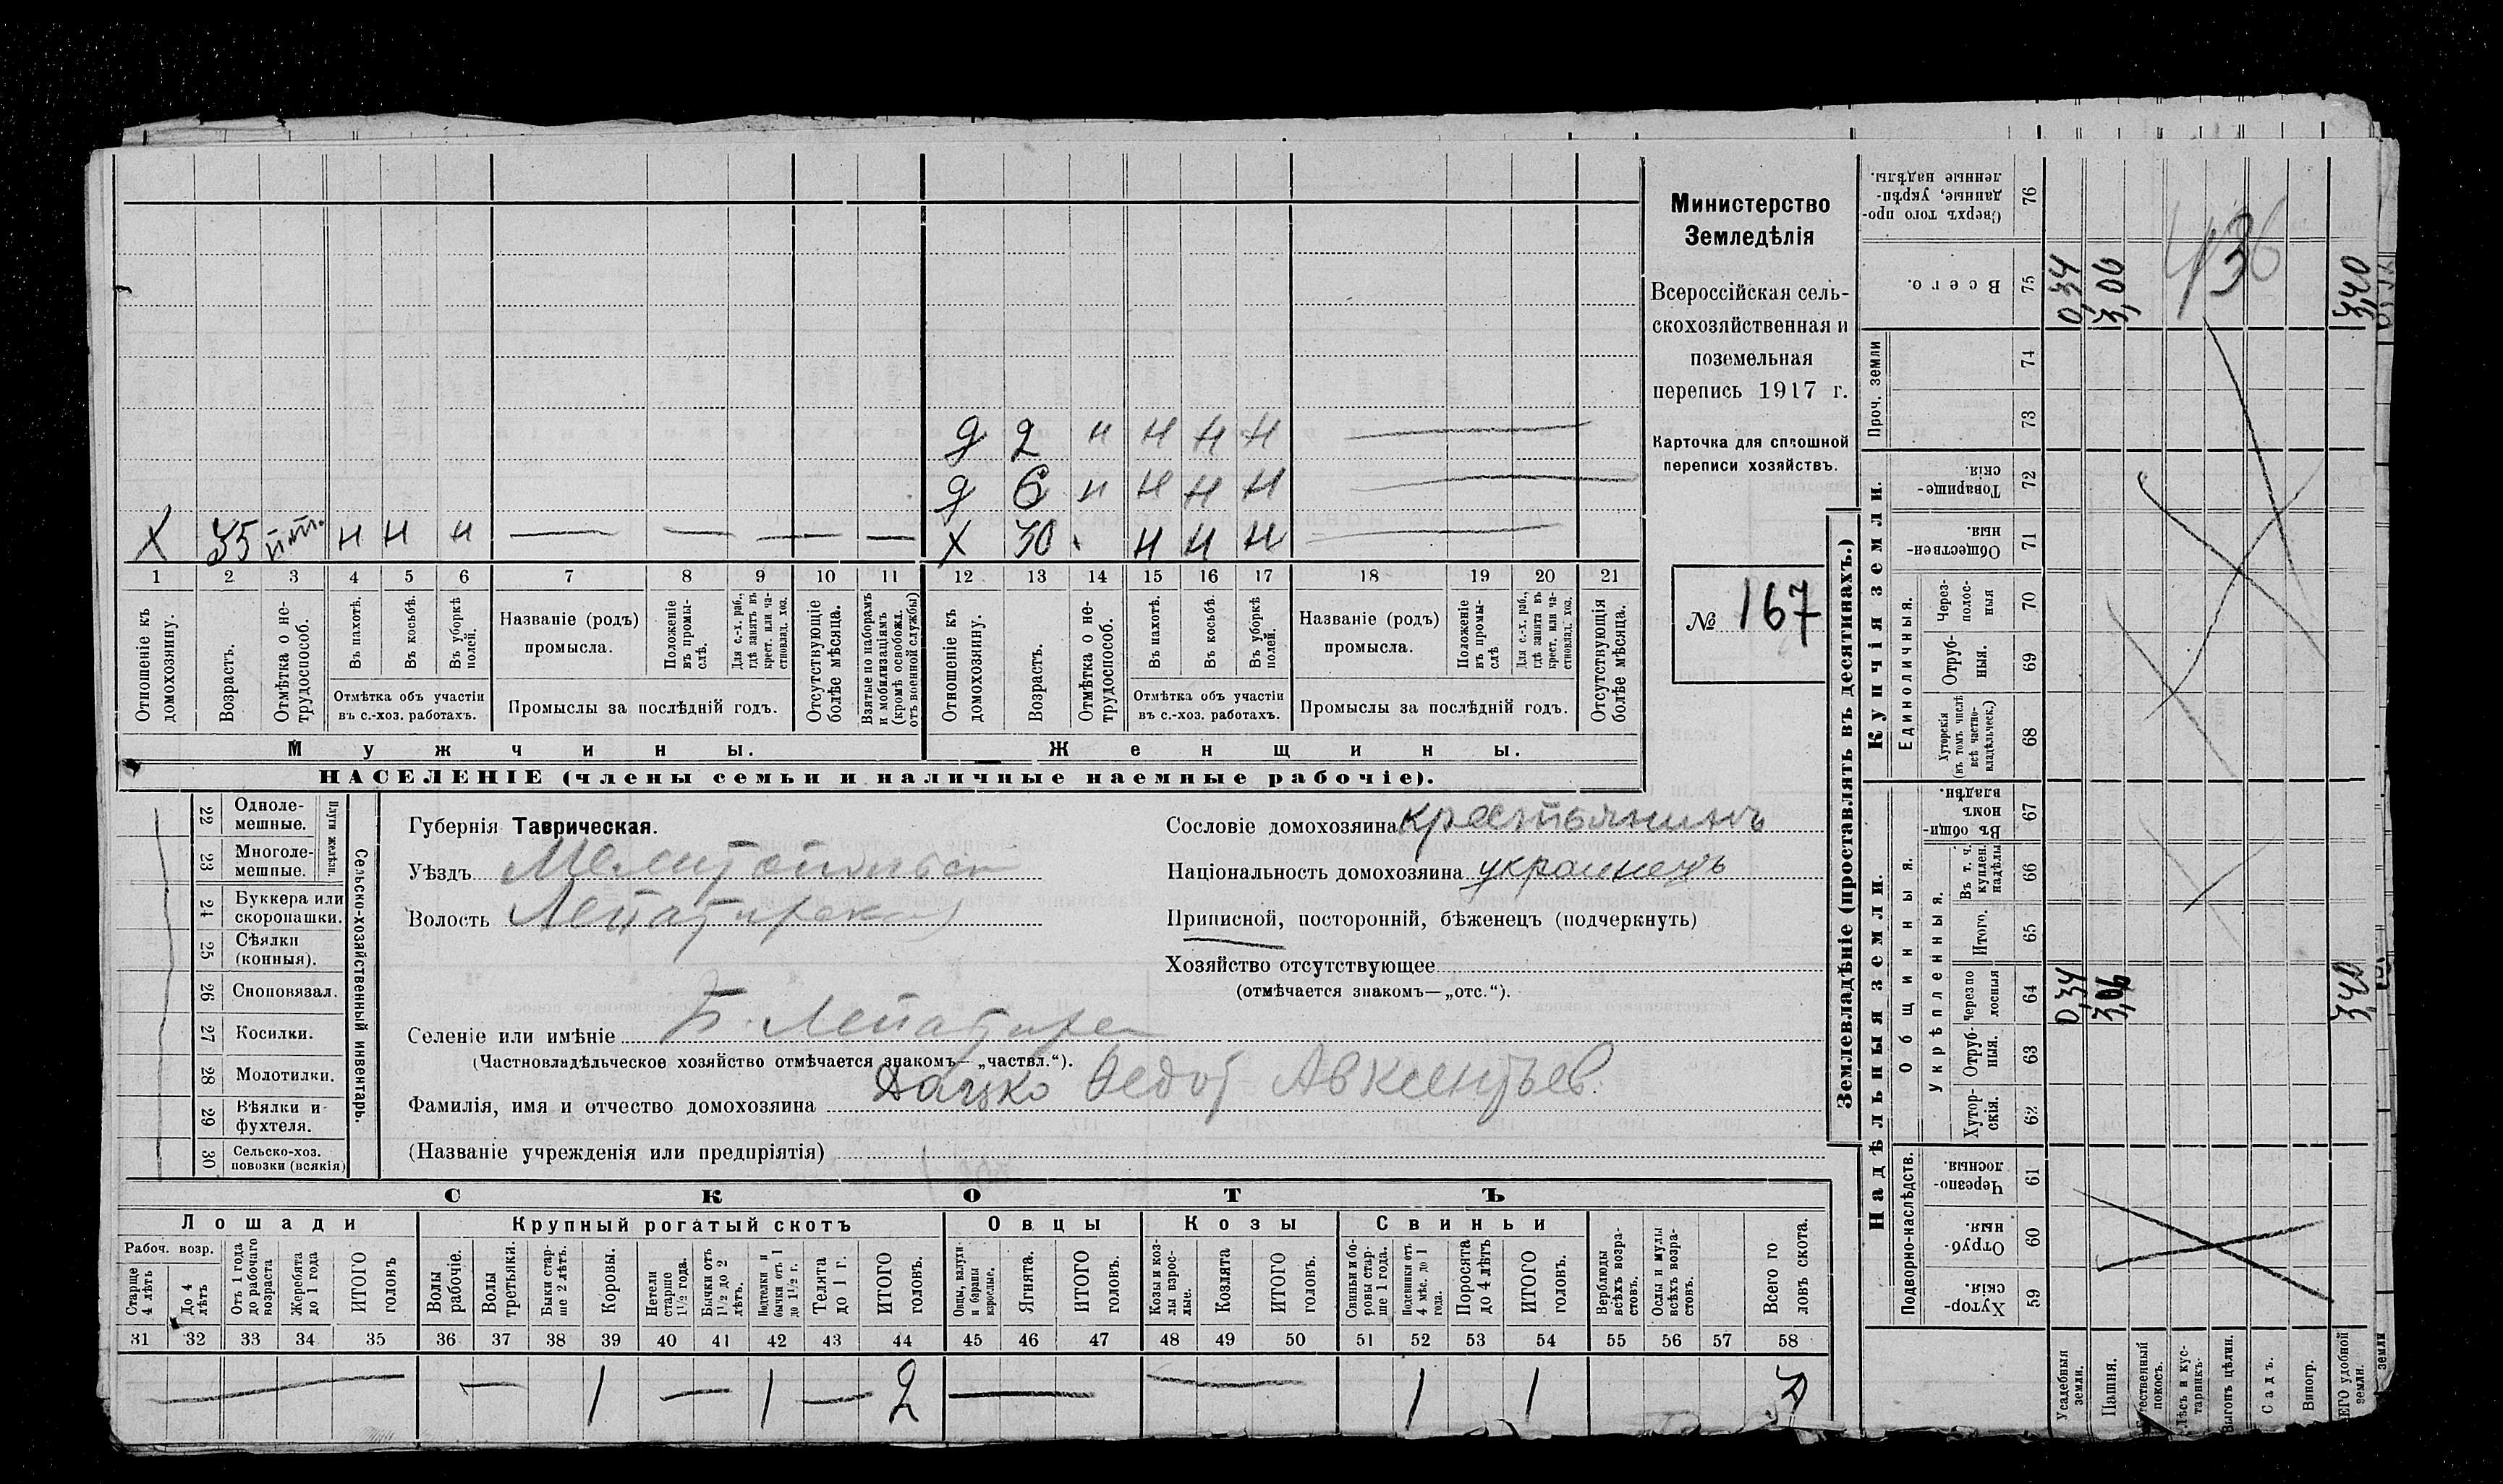 Министерство
Земледѣлія
Всероссійская сель-
скохозяйственная и
поземельная
перепись 1917 г.
Карточка для сплошной
переписи хозяйствъ.
№ 167
д 2 н н н н
д 6 н н н н
х 35 н н н х 30 н н н
1 2 3 4 5 6 7 8 9 10 11 12 13 14 15 16 17 18 19 20 21
Отношеніе къ домохозяину.
Возрастъ.
Отмѣтка о не-
трудоспособ.
Въ пахотѣ.
Въ косьбѣ.
Въ уборкѣ полей.
Отмѣтка объ участіи
въ с.-хоз. работахъ.
Названіе (родъ)
промысла.
Положеніе въ промы-
слѣ.
Для с.-х. раб.,
гдѣ занятъ въ
крест. или ча-
стновлад. хоз.
Промыслы за послѣдній годъ.
Отсутствующіе
болѣе мѣсяца.
Взятые по наборамъ
и мобилизаціямъ
(кромѣ освобожд.
отъ военной службы)
Отношеніе къ
домохозяину.
Возрастъ.
Отмѣтка о не-
трудоспособ.
Въ пахотѣ.
Въ косьбѣ.
Въ уборкѣ полей.
Отмѣтка объ участіи
въ с.-хоз. работахъ.
Названіе (родъ)
промысла.
Положеніе
въ промы-
слѣ
Для с.-х. раб.,
гдѣ занята въ
крест. или ча-
стновлад. хоз.
Промыслы за послѣдній годъ.
Отсутствующія
болѣе мѣсяца.
Мужчины.
Женщины.
НАСЕЛЕНІЕ (члены семьи и наличные наемные рабочіе).
22 Одноле-
мешные.
23 Многоле-
мешные.
Плуги желѣзн.
24 Буккера или
скоропашки.
25 Сѣялки
(конныя).
26 Сноповязал.
27 Косилки.
28 Молотилки.
29 Вѣялки и
фухтеля.
30 Сельско-хоз.
повозки (всякія)
Сельско-хозяйственный инвентарь.
Губернія Таврическая.
Уѣздъ Мелитопольск
Волость Лепатирская
Селеніе или имѣніе Б. Лепатиха
(Частновладѣльческое хозяйство отмѣчается знакомъ—„частвл.“).
Фамилія, имя и отчество домохозяина Дацко Федот Авксентьев.
(Названіе учрежденія или предпріятія)
Сословіе домохозяина крестьянинъ
Національность домохозяина украинецъ
Приписной, посторонній, бѣженецъ (подчеркнуть)
Хозяйство отсутствующее
(отмѣчается знакомъ—„отс.“).
СКОТЪ
Лошади
Крупный рогатый скотъ
Овцы
Козы
Свиньи
Рабоч. возр.
Старше
4 лѣтъ
До 4
лѣтъ
Отъ 1 года
до рабочаго
возраста
Жеребята
до 1 года
ИТОГО
головъ
Волы
рабочіе.
Волы
третьяки.
Быки стар-
ше 2 лѣтъ.
Коровы.
Нетели
старше
1½ года.
Бычки отъ
1½ до 2
лѣтъ.
Подтелки и
бычки отъ 1
до 1½ г.
Телята
до 1 г.
ИТОГО
головъ.
Овцы, валухи
и бараны
взрослые.
Ягнята.
ИТОГО
головъ.
Козы и коз-
лы взрос-
лые.
Козлята
ИТОГО
головъ.
Свиньи и бо-
ровы стар-
ше 1 года.
Подсвинки отъ
4 мѣс. до 1
года.
Поросята
до 4 лѣтъ
ИТОГО
головъ.
Верблюды
всѣхъ возра-
стовъ.
Ослы и мулы
всѣхъ возра-
стовъ.
Всего го
ловъ скота.
31 32 33 34 35 36 37 38 39 40 41 42 43 44 45 46 47 48 49 50 51 52 53 54 55 56 57 58
1 1 2 1 1
Землевладѣніе (проставлять въ десятинахъ.)
Купчія земли.
Надѣльныя земли.
Сверхъ того про-
данные, укрѣп-
ленные надѣлы.
76
Всего.
75
0,34
3,06
436
3,40
Проч. земли
74
73
Товарище-
скія.
72
Обществен-
ныя.
71
Единоличныя.
Через-
полос-
ныя
70
Отруб-
ныя.
69
Хуторскія
(въ томъ числѣ
всѣ частно-
владѣльческ.)
68
Общинныя.
Въ общин-
номъ
владѣн.
67
Укрѣпленныя.
Въ т. ч.
куплен.
надѣлы
66
Итого.
65
Черезпо
лосныя
64
0,34
3,06
3,40
Отруб-
ныя.
63
Хутор-
скія.
62
Подворно-наслѣдств.
Черезпо-
лосныя.
61
Отруб-
ныя.
60
Хутор-
скія.
59
Усадебныя
земли.
Пашня.
Естественный
покосъ.
Лѣсъ и кус-
тарникъ.
Выгонъ цѣлин.
Садъ.
Виногр.
ЕГО удобной
земли.
земли